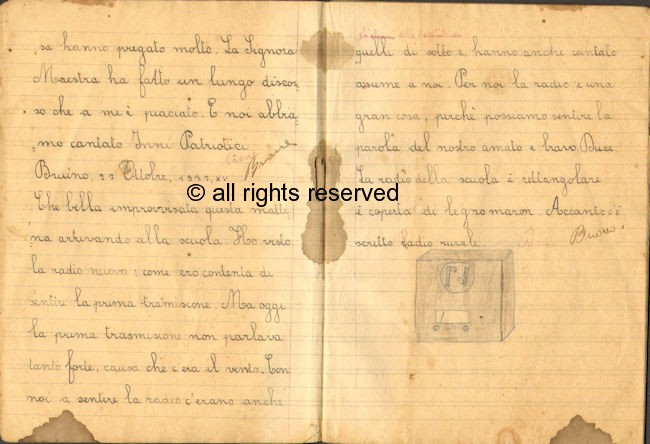 sa hanno pregato molto. La Signora
Maestra ha fatto un lungo discor-
so che a me è piaciuto. E noi abbia-
mo cantato Inni Patriottici
Bruino, 22 Ottobre, 1937, XV
Che bella improvvisata questa matti-
na arrivando alla scuola. Ho visto
la radio nuova: come ero contenta di
sentire la prima tramisione. Ma oggi
la prima trasmisione non parlava
tanto forte, causa che c'era il vento. Con
noi a sentire la radio c'erano anche
quelli di sotto e, hanno anche cantato
assieme a noi. Per noi la radio e una
gran cosa, perchè possiamo sentire la
parola del nostro amato e bravo Duce.
La radio della scuola è rettangolare
è coperta di legno maron. Accanto c'è
scritto Radio rurale.
© all rights reserved